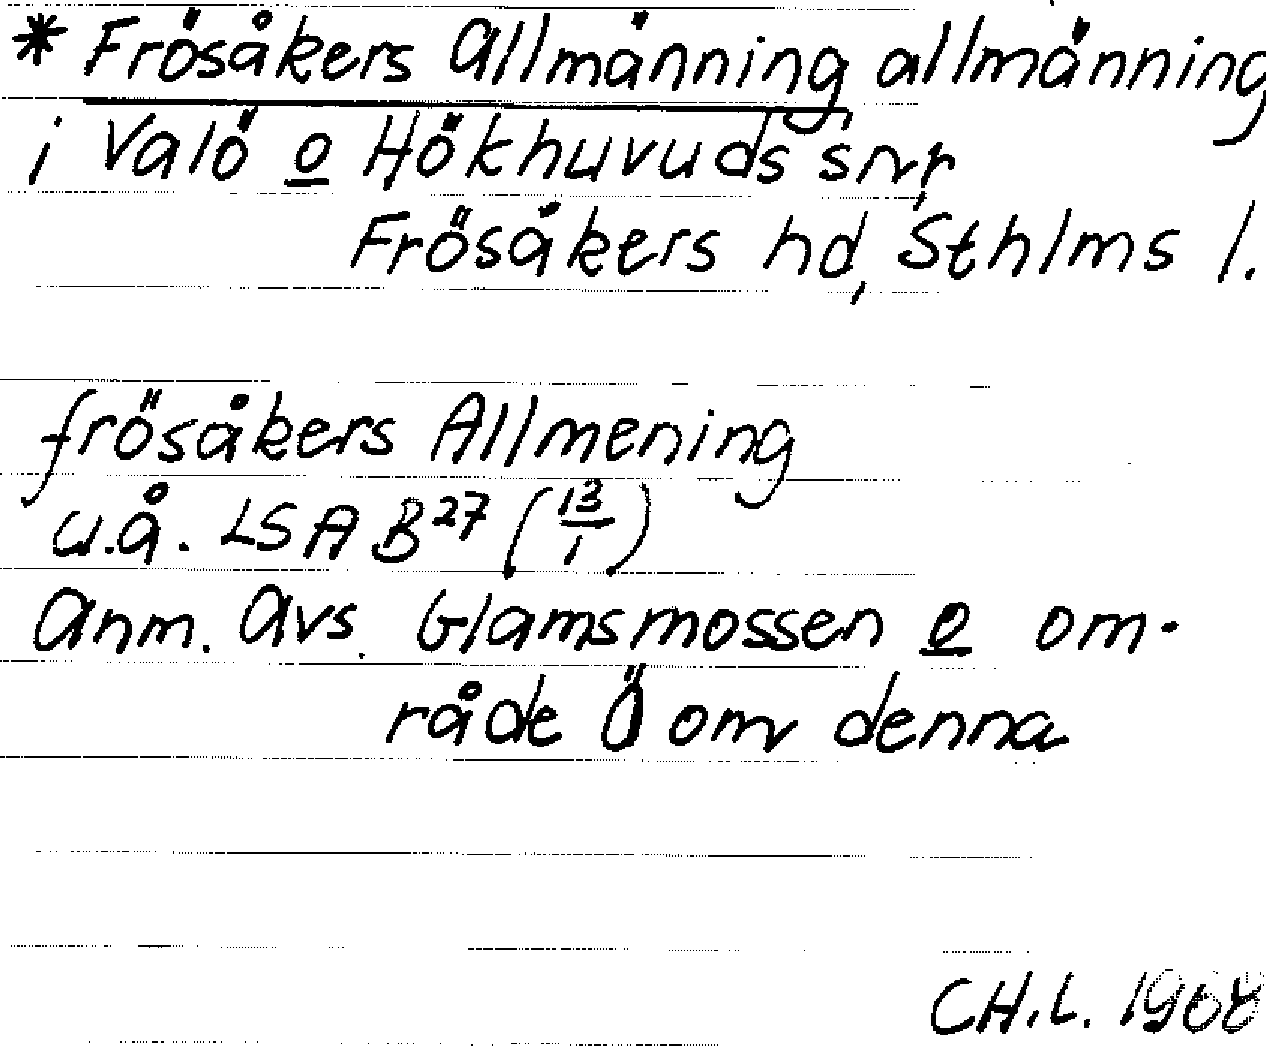 * Frösåkers Allmänning allmänning
i Valö o Hökhuvuds snr,
Frösåkers hd, Sthlms l.
frösåkers Allmening
u.å. LSA B27 (13/1)
Anm. Avs. Glamsmossen o om-
råde Ö om denna
CH.L. 1968